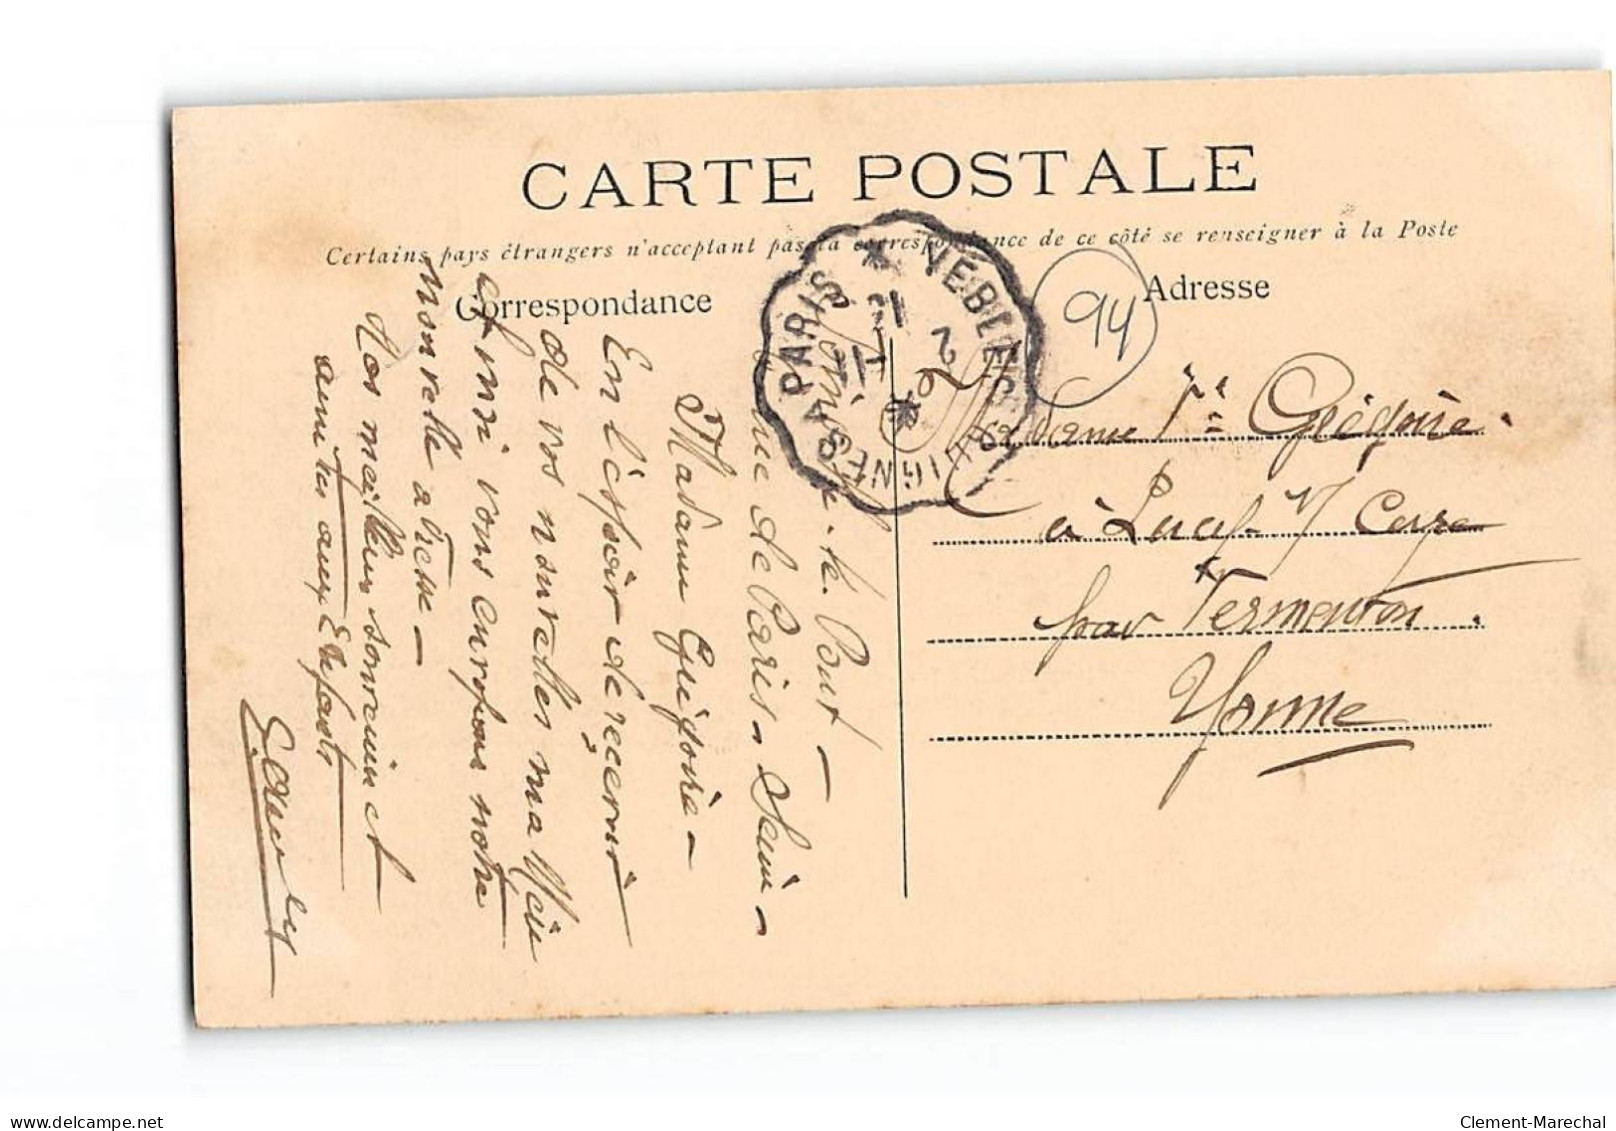 CARTE POSTALE
Certains pays étrangers n'acceptant pas la correspondance de ce côté se renseigner à la Poste
Correspondance
Adresse
94
PARIS * NEBLE
LIGNES
2
le Pont —
rue de Paris. Seine —
Madame Grégoire —
En l'espoir de recevoir
de vos nouvelles
et moi vous envoyons notre
nouvelle adresse —
Les meilleurs souvenirs et
amitiés aux Enfants
Madame Grégoire.
à Lucy s/ Cure
par Vermenton.
Yonne
delcampe.net
Clement-Marechal